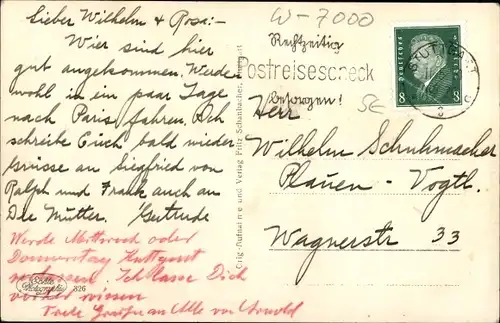 Lieber Wilhelm & Rosa:-
Wier sind hier
gut angekommen. Werde
wohl in ein paar Tage
nach Paris fahren. Ich
schreibe Euch bald wieder
Grüsse an Siegfried von
Ralph und Frank auch an
Die Mutter. Gertrude
Werde Mittwoch oder
Donnerstag Stuttgart
verlassen. Ich lasse Dich
vorher wissen
Grüße an Alle von Arnold
826
Verlag Fritz Schanbacher
W-7000
Rechtzeitig
Postreisescheck
besorgen!
STUTTGART
8 8
Herr
Wilhelm Schuhmacher
Plauen - Vogtl.
Wagnerstr 33